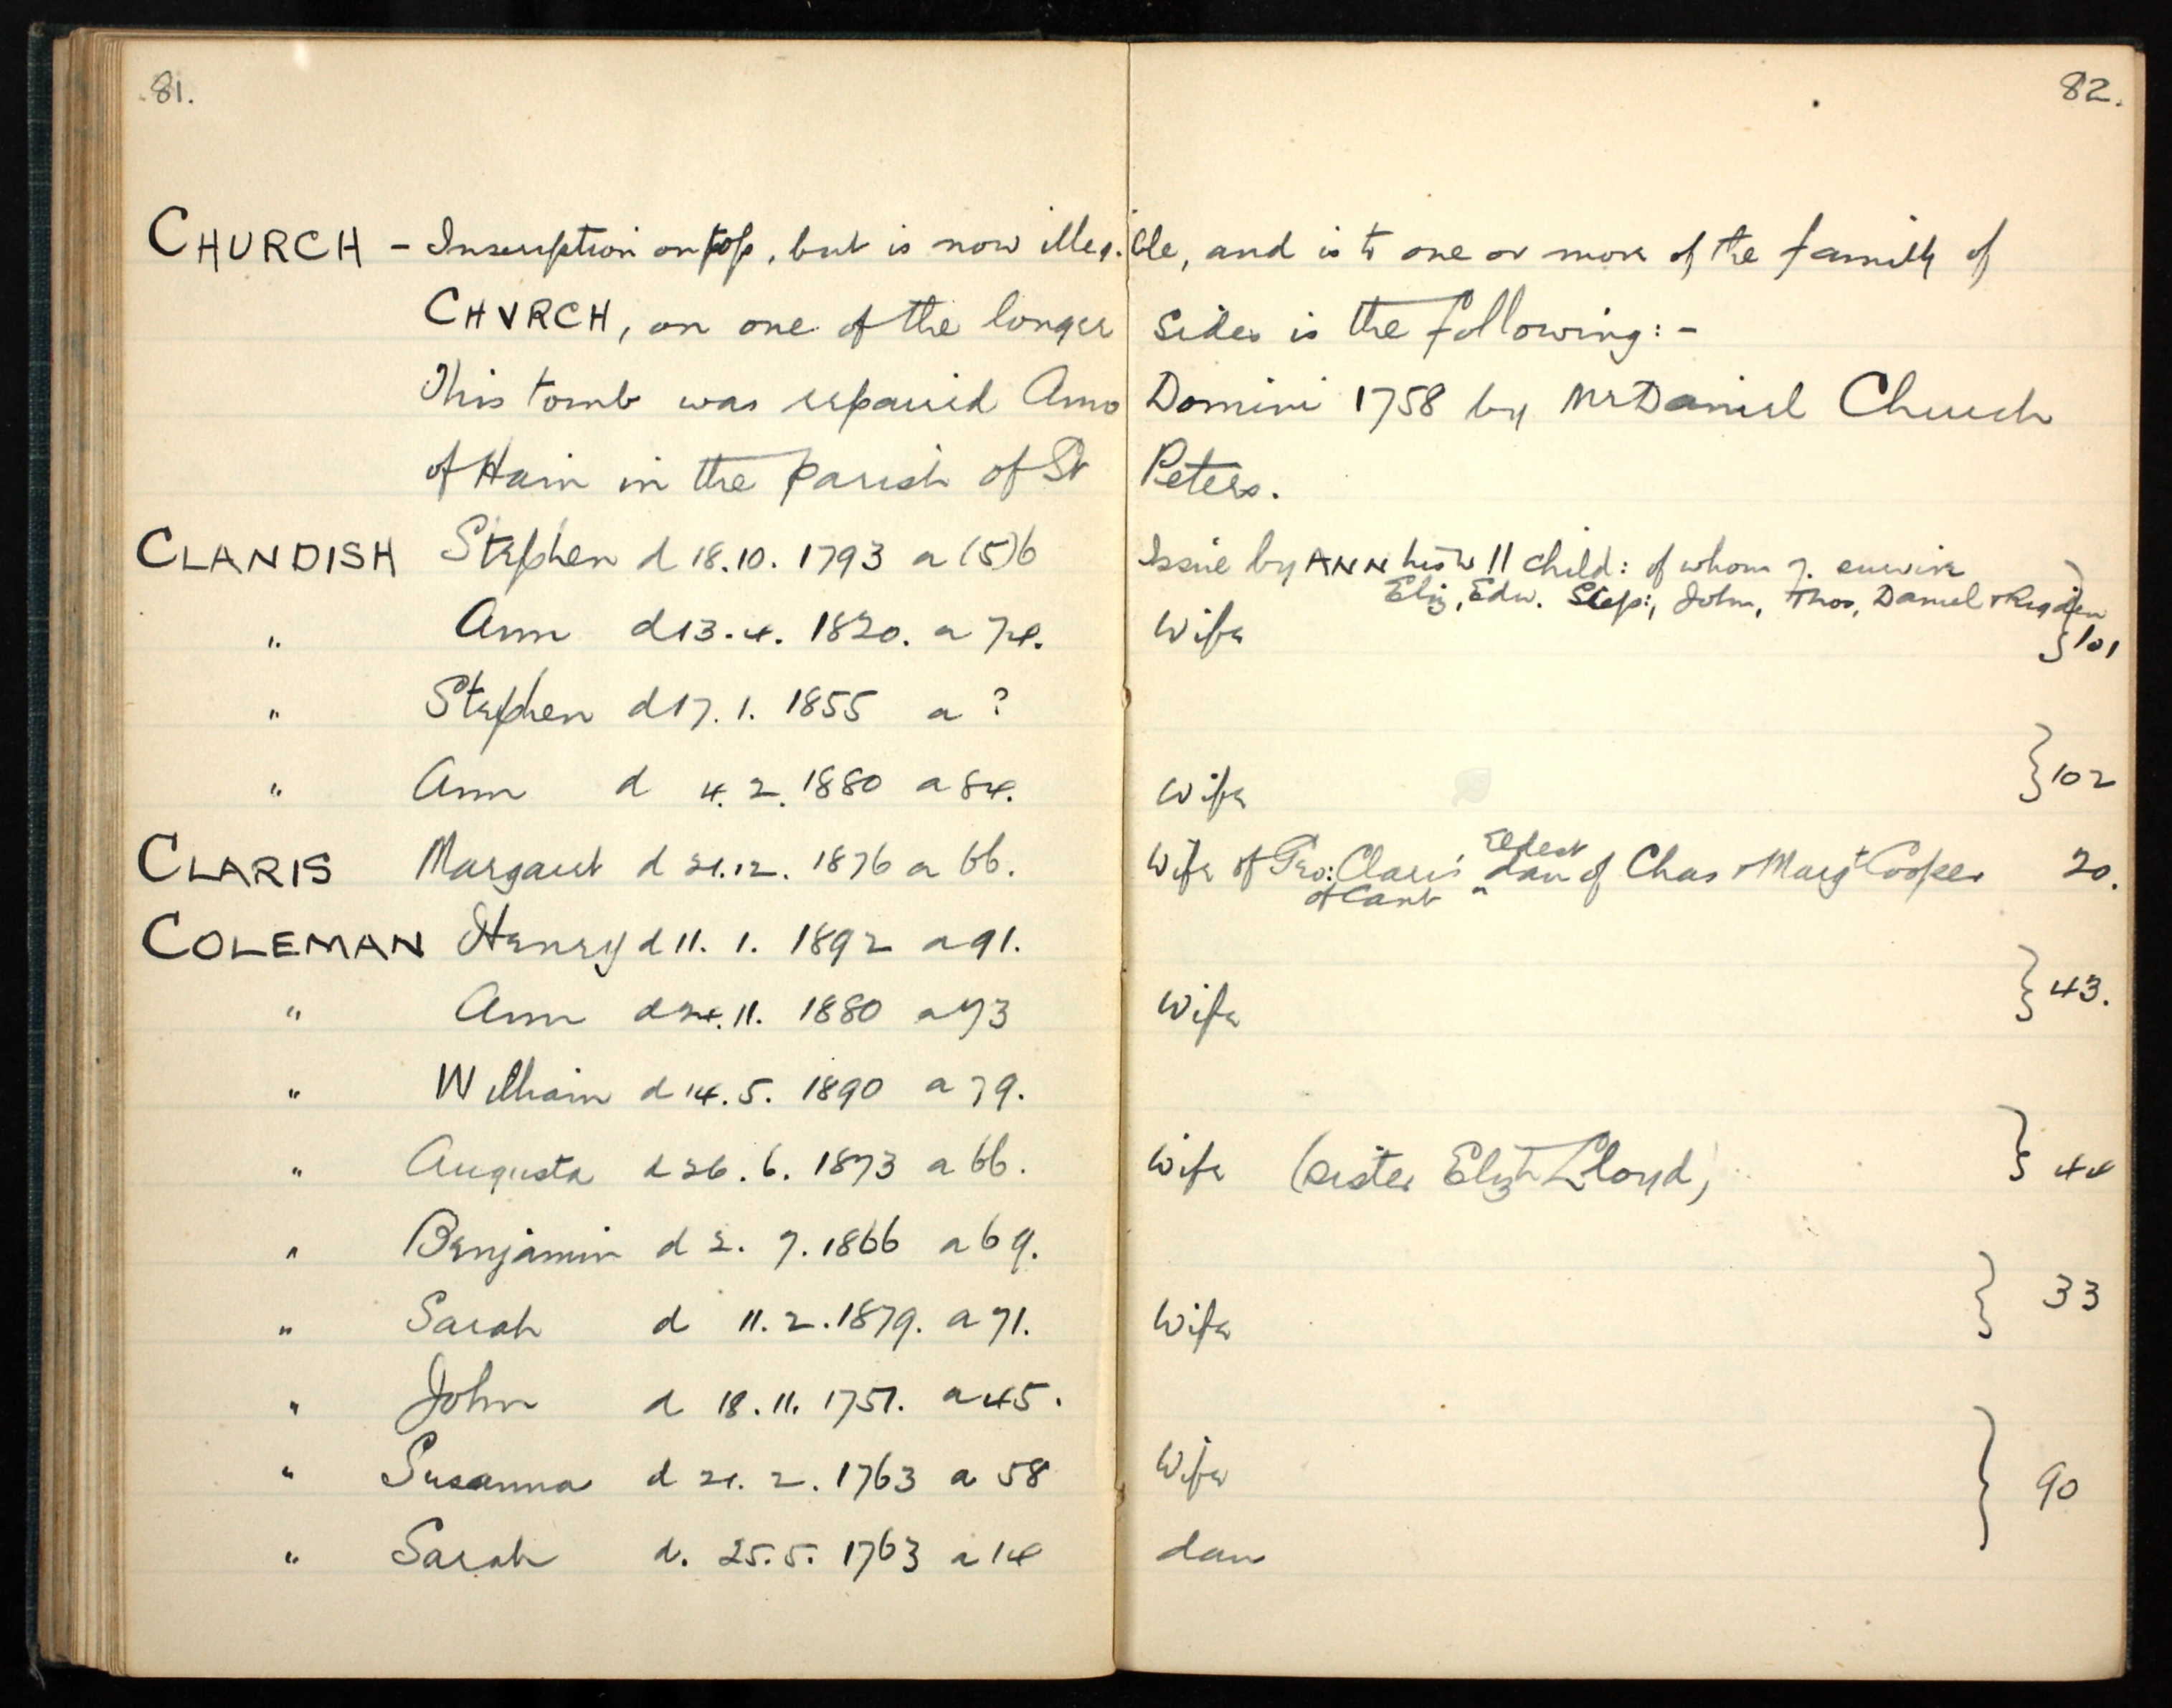 81.
82.
CHURCH - Inscription on top, but is now illegible, and is to one or more of the family of
CHVRCH, on one of the longer sides is the following: -
This tomb was repaired Anno Domini 1758 by Mr Daniel Church
of Hain in the parish of St Peters.
CLANDISH Stephen d 18.10. 1793 a (5)6 Issue by ANN his w 11 child: of whom 7. survive
Eliz, Edw. Step:, John, Thos, Daniel & Rigden
" Ann d 13.4. 1820. a 74. Wife } 101
" Stephen d 17.1. 1855 a ?
" Ann d 4.2. 1880 a 84. Wife } 102
CLARIS Margaret d 21.12. 1876 a 66. Wife of Geo: Claris of Cant & eldest dau of Chas & Margt Cooper 20.
COLEMAN Henry d 11. 1. 1892 a 91.
" Ann d 24.11. 1880 a 73 Wife } 43.
" William d 14.5. 1890 a 79.
" Augusta d 26.6. 1873 a 66. Wife (sister Elizth Lloyd) } 44
" Benjamin d 2. 7. 1866 a 69.
" Sarah d 11.2.1879. a 71. Wife } 33
" John d 18.11. 1751. a 45.
" Susanna d 21. 2. 1763 a 58 Wife } 90
" Sarah d. 25.5. 1763 a 14 dau